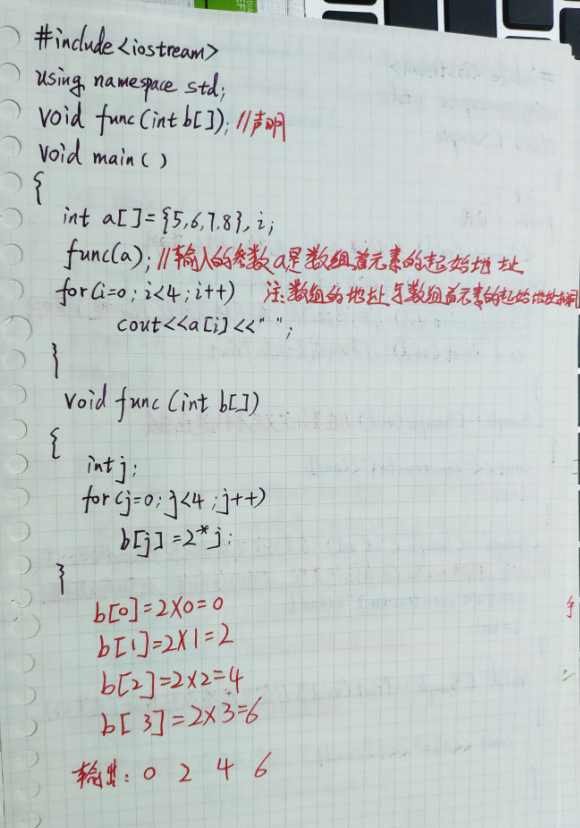 #include<iostream>
using namespace std;
void func(int b[]); //声明
void main()
{
int a[]={5,6,7,8},i;
func(a); //输入的参数a是数组首元素的起始地址
for(i=0;i<4;i++) 注:数组的地址与数组首元素的起始地址相同
cout<<a[i]<<" ";
}
void func(int b[])
{
int j;
for(j=0;j<4;j++)
b[j]=2*j;
}
b[0]=2×0=0
b[1]=2×1=2
b[2]=2×2=4
b[3]=2×3=6
输出: 0 2 4 6